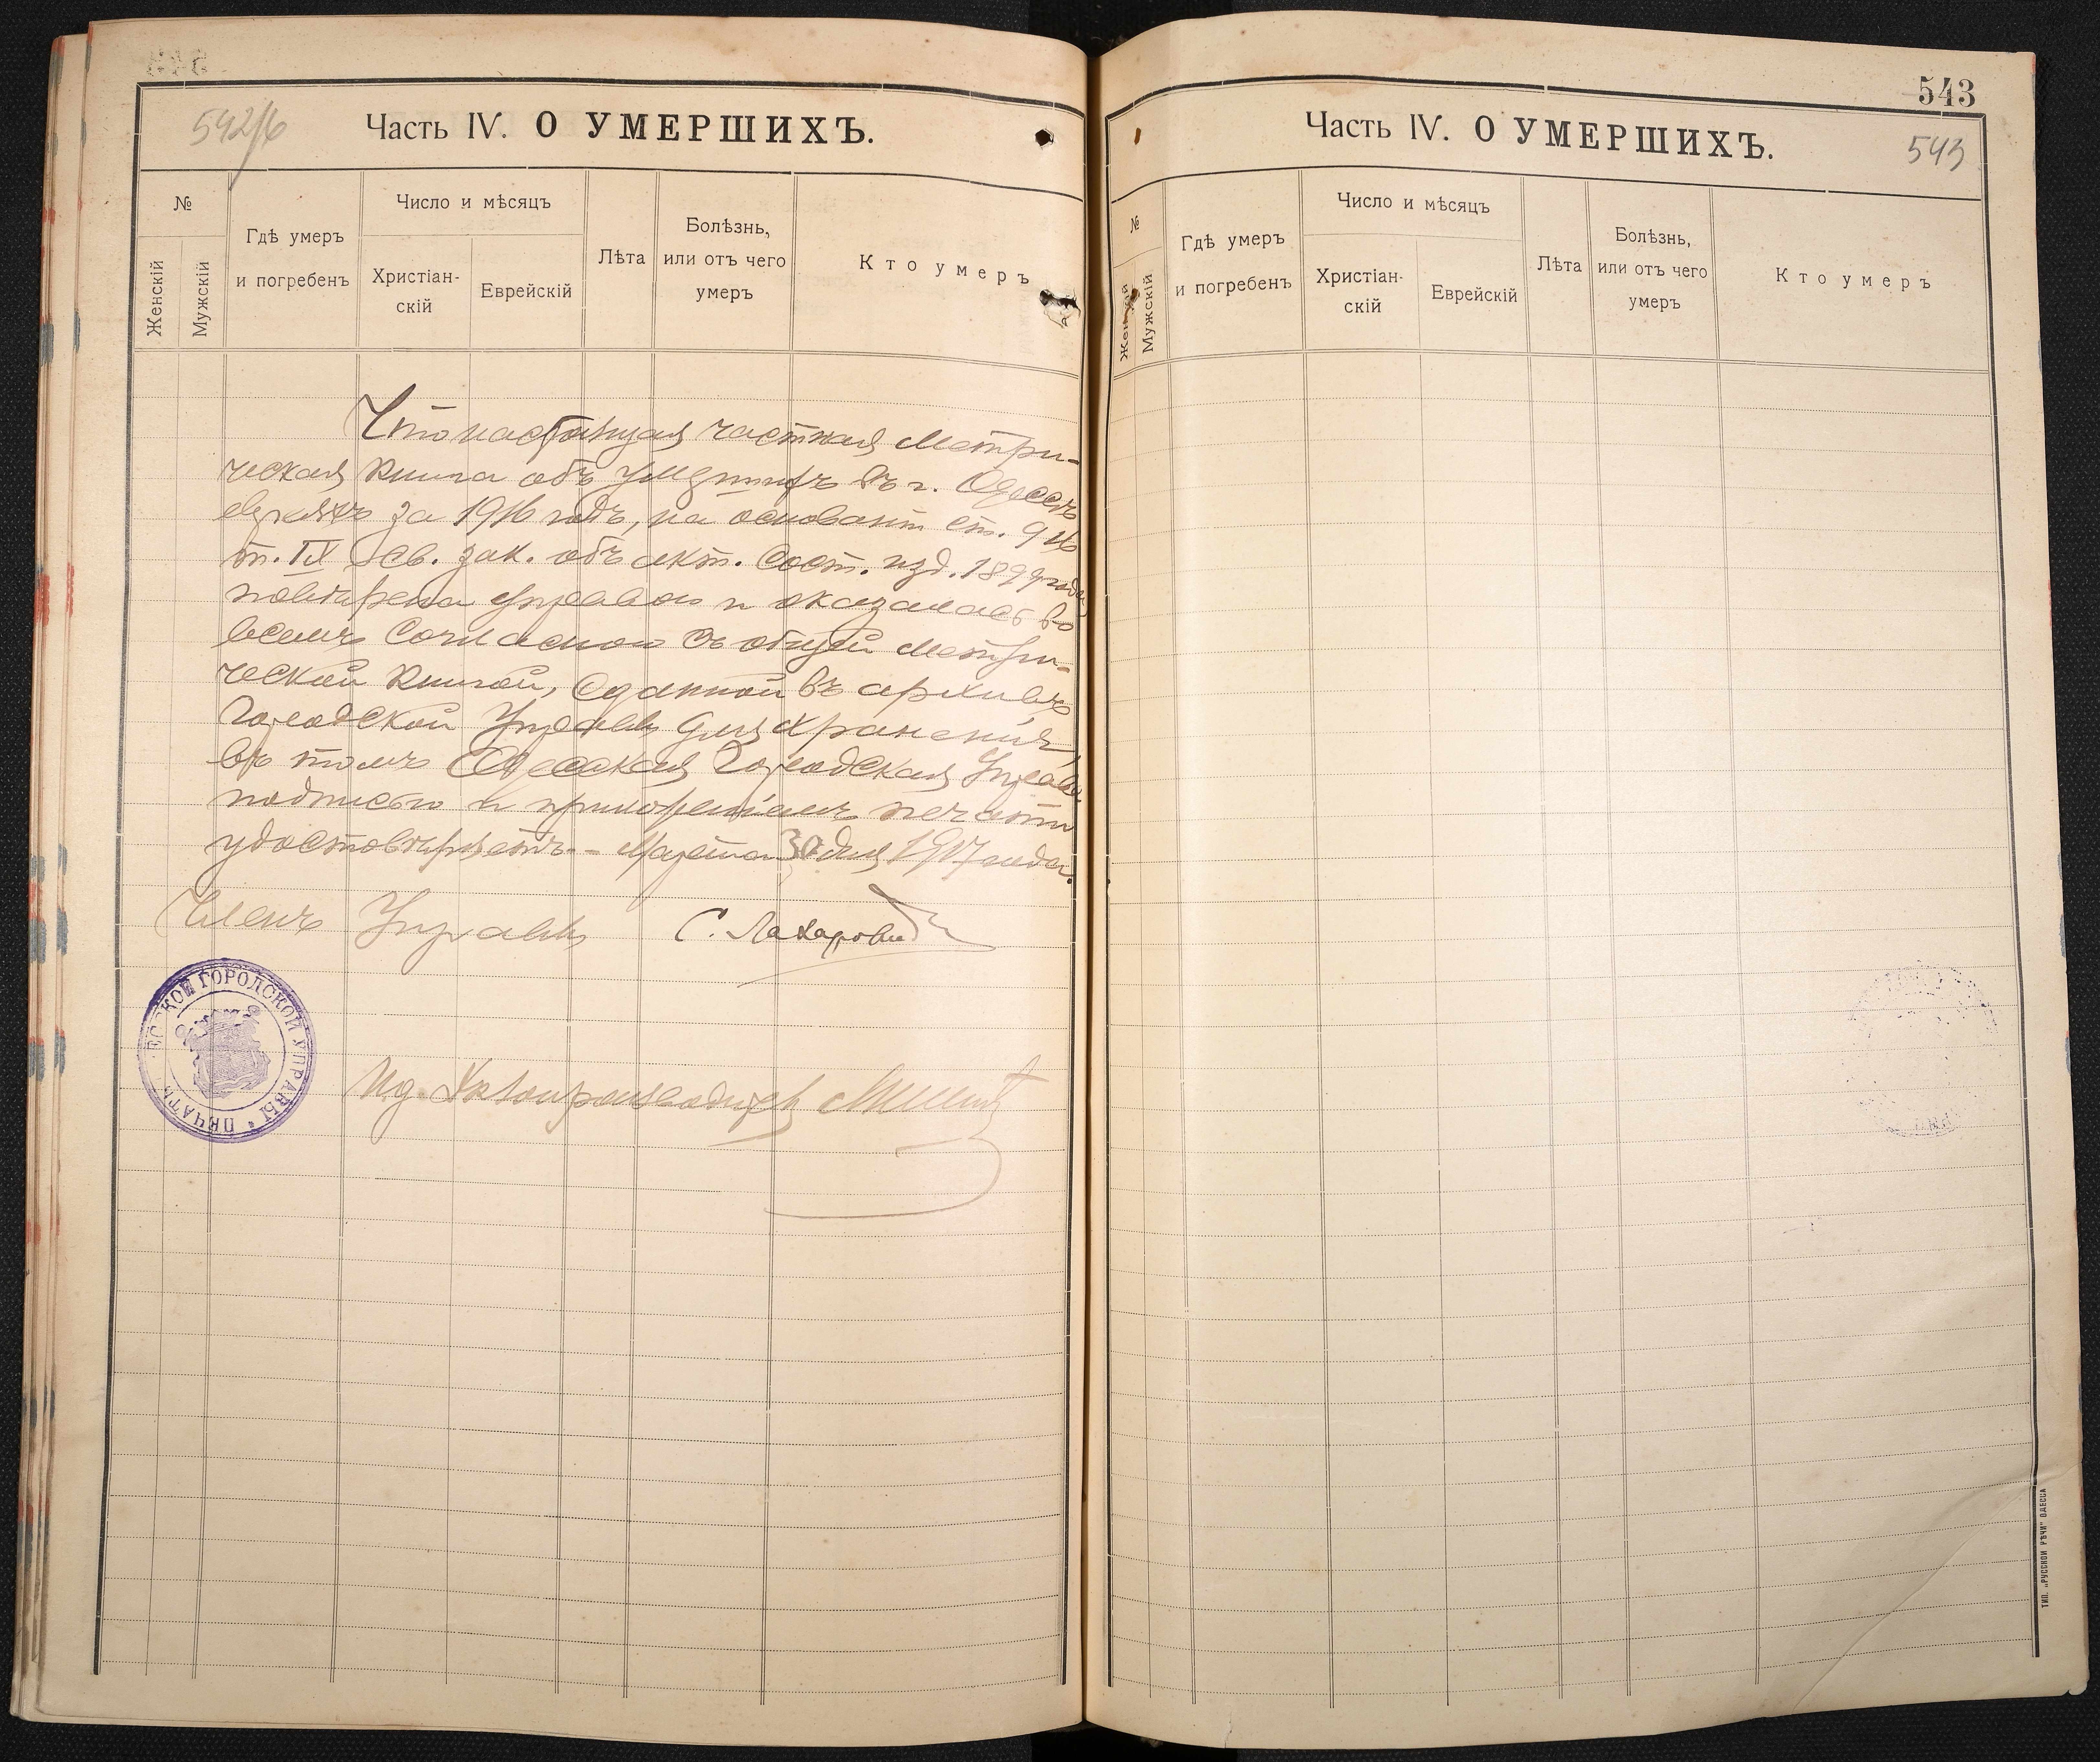 542/б
Часть IV. О УМЕРШИХЪ.
№
Женскій
Мужскій
Гдѣ умеръ
и погребенъ
Число и мѣсяцъ
Христіан-
скій
Еврейскій
Лѣта
Болѣзнь,
или отъ чего
умеръ
Кто умеръ
Что настоящая частная Метри-
ческая книга объ умершихъ въ г. Одессѣ
евреяхъ за 1916 годъ, на основаніи ст. 916
т. IX Св. зак. объ акт. сост. изд. 1899 года
повѣрена Управою и оказалась во
всемъ согласною съ общей Метри-
ческой книгой, сданной въ архивъ
Городской Управы для храненія,
въ томъ Одесская Городская Управа
подписью и приложеніемъ печати
удостовѣряетъ.- Марта 30 дня 1917 года.
Членъ Управы
ПЕЧАТЬ ОДЕССКОЙ ГОРОДСКОЙ УПРАВЫ
И.д. Дѣлопроизводителя
543
Часть IV. О УМЕРШИХЪ.
543
№
Женскій
Мужскій
Гдѣ умеръ
и погребенъ
Число и мѣсяцъ
Христіан-
скій
Еврейскій
Лѣта
Болѣзнь,
или отъ чего
умеръ
Кто умеръ
ТИП. „РУССКОЙ РѢЧИ" ОДЕССА